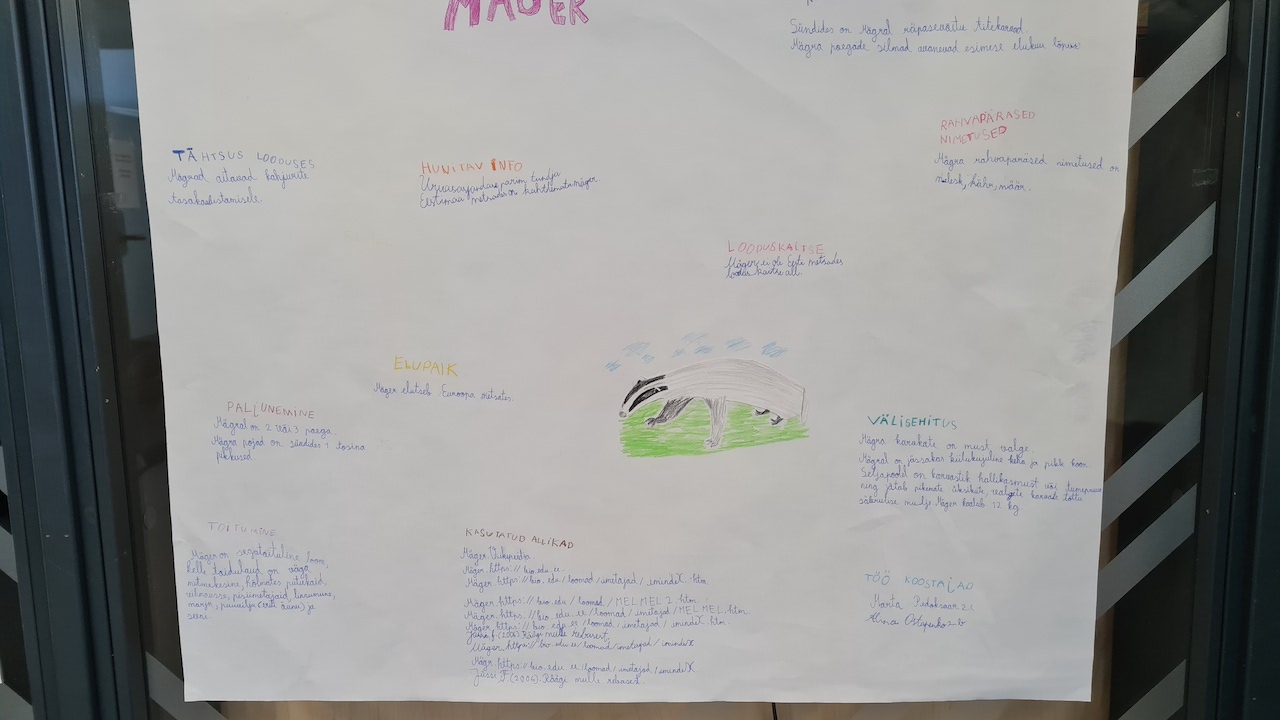 MÄGER
Sündides on Mägral
Mägra poegade silmad avanevad esimese elukuu lõpus
RAHVAPÄRASED
NIMETUSED
Mägra rahvapärased nimetused on
mäsk, kähr, määr.
TÄHTSUS LOODUSES
Mägrad aitavad kahjurite
tasakaalustamisele.
HUVITAV INFO
Urueurgude parim tundja
Eestimaa metsades on kahtlemata mäger
LOODUSKAITSE
Mäger ei ole Eesti metsades
kaitse all.
ELUPAIK
Mäger elutseb Euroopa metsates.
PALJUNEMINE
Mägral on 2 või 3 poega.
Mägra pojad on sündides 1 tosina
pikkused.
VÄLISEHITUS
Mägra karvkate on must valge
Mägral on jässakas kiilukujuline keha ja pikk koon
Seljapoolel on karvastik hallikasmust või tumepruun
ning jätab pikemate üksikute, valgete karvade tõttu
säbrulise mulje Mäger kaalub 12 kg
TOITUMINE
Mäger on segatoiduline loom,
kelle toidulaud on väga
mitmekesine, hõlmates putukaid,
vihmausse, pisiimetajaid, linnumune,
marju, puuvilju (eriti õunu) ja
seeni.
KASUTATUD ALLIKAD
Mäger. Vikipedia
Mäger. https://bio.edu.ee
Mäger. https://bio.edu/loomad/imetajad/imindeX.htm
Mäger. https://bio.edu/loomad/MELMEL2.htm
Mäger. https://bio.edu.ee/loomad/imetajad/MELMEL.htm
Mäger. https://bio.edu.es/loomad/imetajad/imindeX.htm.
Jüssi.F (2006). Räägi mulle rebasest.
Mäger. https://bio.edu.ee/loomad/imetajad/imindeX
Mäger. https://bio.edu.ee/loomad/imetajad/imindeX
Jüssi F (2006). Räägi mulle rebasest.
TÖÖ KOOSTAJAD
Marta Pedoksaar 2.c
Alina Ostapenko 2.b